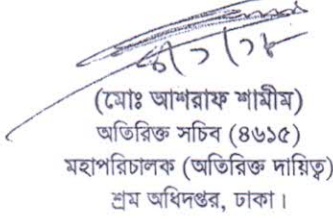 (মোঃ আশরাফ শামীম)
অতিরিক্ত সচিব (৪৬১৫)
মহাপরিচালক (অতিরিক্ত দায়িত্ব)
শ্রম অধিদপ্তর, ঢাকা।